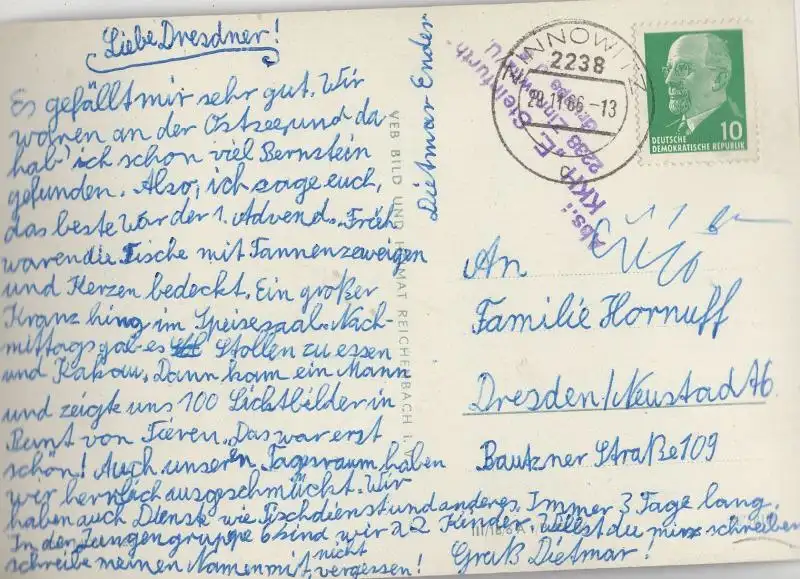 Liebe Dresdner!
Es gefällt mir sehr gut. Wir
waren an der Ostsee und da
hab' ich schon viel Bernstein
gefunden. Also, ich sage euch,
das beste war der 1. Advend. Früh
waren die Tische mit Tannenzweigen
und Kerzen bedeckt. Ein großer
Kranz hing im Speisesaal. Nach-
mittags gab es Stollen zu essen
und Kakau. Dann kam ein Mann
und zeigte uns 100 Lichtbilder in
Bunt von Tieren. Das war erst
schön! Auch unseren Tagesraum haben
wir herrlich ausgeschmückt. Wir
haben auch Dienste wie Tischdienst und anderes. Immer 3 Tage lang.
In der Jungengruppe 6 sind wir 22 Kinder. Willst du mir schreiben
schreibe meinen Namen mit, nicht vergessen!
Gruß Dietmar!
Dietmar Ender
VEB BILD UND HEIMAT REICHENBACH i. V.
Abs.: KKH "E. Steinfurth"
2238 Zinnowitz
ZINNOWITZ
2238
29.11.66.-13
10
DEUTSCHE
DEMOKRATISCHE REPUBLIK
An
Familie Hornuff
Dresden/Neustadt A6
Bautzner Straße 109